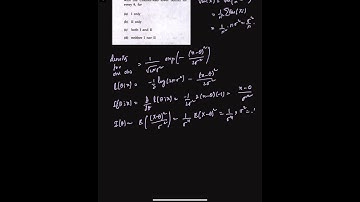 every θ, for
(a) I only
(b) II only
(c) both I and II
(d) neither I nor II
Σ Var(Xi)
= 1/n² · nσ² = σ²/n
density
for
one obs = 1/√2πσ² exp(− (x−θ)²/2σ²)
l(θ;x) = −1/2 log(2πσ²) − (x−θ)²/2σ²
l'(θ;x) = ∂/∂θ l(θ;x) = −1/2σ² 2(x−θ)(−1) = x−θ/σ²
I(θ) = E((X−θ)²/σ⁴) = 1/σ⁴ E(X−θ)² = 1/σ⁴ σ² =